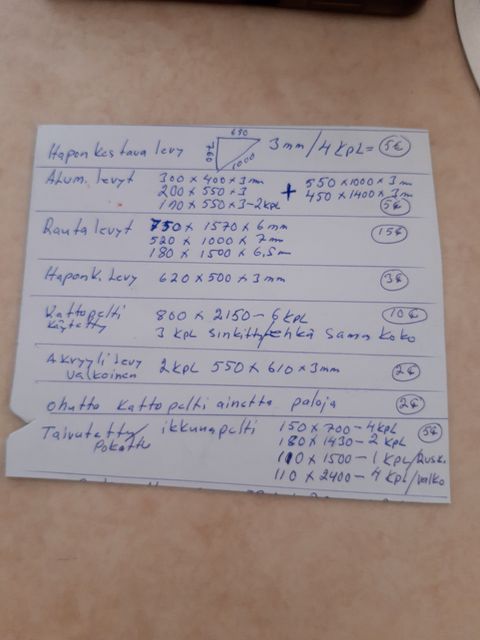 Haponkestava levy 690 760 1000 3mm/4KPL= 5€
Alum. levyt 300 x 400 x 3m + 550 x 1000 x 3m
200 x 550 x 3 450 x 1400 x 3m
100 x 550 x 3-2kpl 5€
Rauta levyt 750 x 1570 x 6mm 15€
520 x 1000 x 7m
180 x 1500 x 6,5m
Haponk. levy 620 x 500 x 3mm 3€
Kattopelti 800 x 2150 - 6 KPL 10€
käytetty 3 KPL sinkitty ehkä sama koko
Akryyli levy 2KPL 550 x 610 x 3mm 2€
valkoinen
ohutta kattopelti ainetta paloja 2€
Taivutettu ikkunapelti 150 x 700 - 4KPL 5€
Pokattu 180 x 1430 - 2 KPL
100 x 1500 - 1 KPL/Rusk.
110 x 2400 - 4 KPL/valko